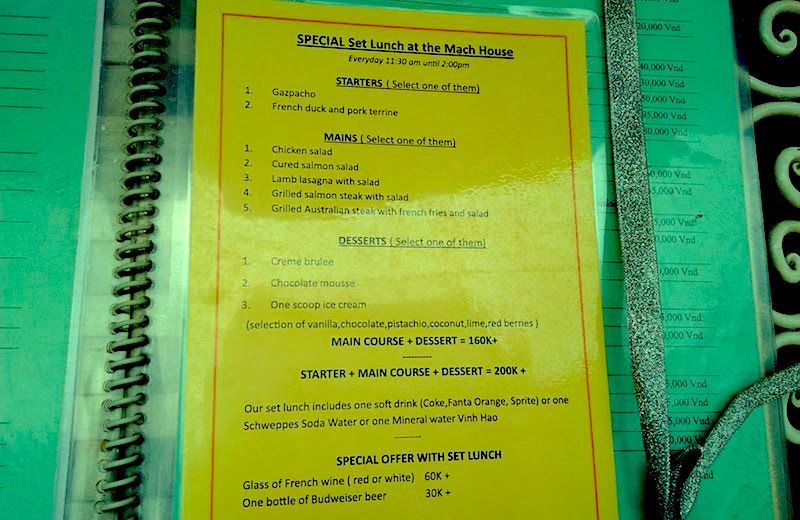 SPECIAL Set Lunch at the Mach House
Everyday 11:30 am until 2:00pm
STARTERS ( Select one of them)
1. Gazpacho
2. French duck and pork terrine
MAINS ( Select one of them)
1. Chicken salad
2. Cured salmon salad
3. Lamb lasagna with salad
4. Grilled salmon steak with salad
5. Grilled Australian steak with french fries and salad
DESSERTS ( Select one of them)
1. Creme brulee
2. Chocolate mousse
3. One scoop ice cream
(selection of vanilla,chocolate,pistachio,coconut,lime,red berries )
MAIN COURSE + DESSERT = 160K+
----------
STARTER + MAIN COURSE + DESSERT = 200K +
Our set lunch includes one soft drink (Coke,Fanta Orange, Sprite) or one
Schweppes Soda Water or one Mineral water Vinh Hao
---------
SPECIAL OFFER WITH SET LUNCH
Glass of French wine ( red or white) 60K +
One bottle of Budweiser beer 30K +